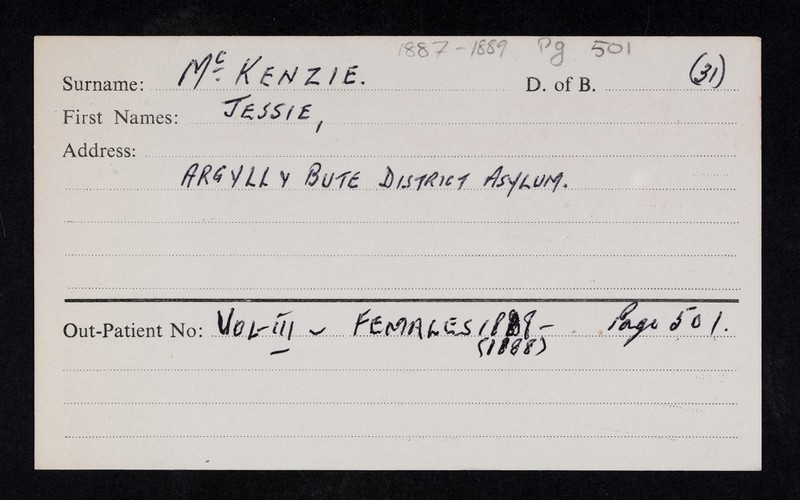 1887-1889 Pg 501
Surname: Mc. KENZIE. D. of B. (31)
First Names: JESSIE,
Address:
ARGYLL Y BUTE DISTRICT ASYLUM.
Out-Patient No: VOL-III - FEMALES 1888- Page 501.
(1888)